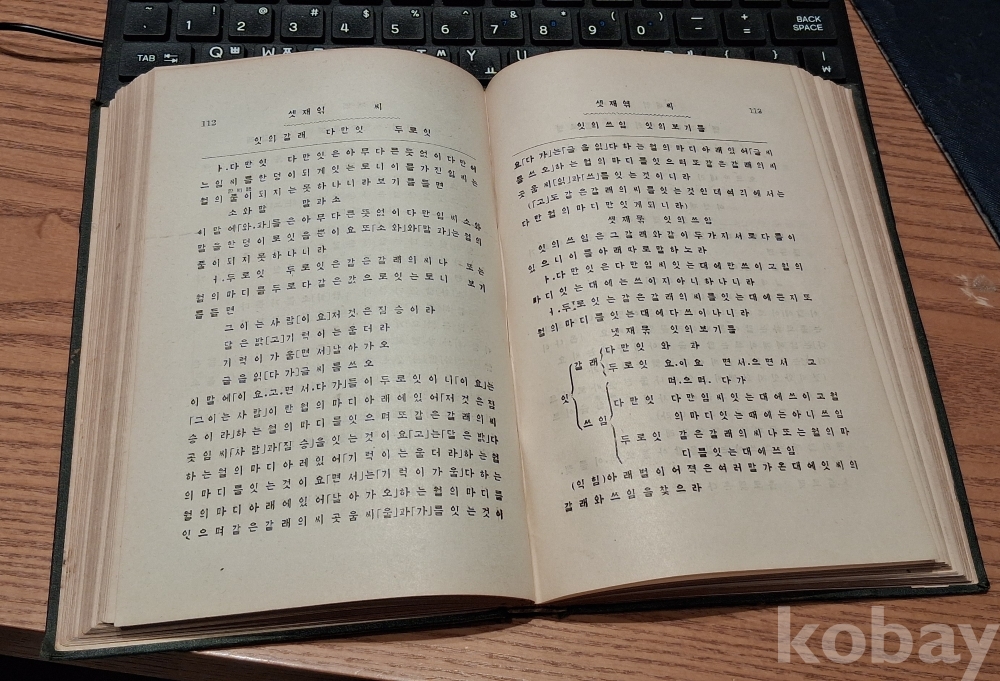 셋재엮 씨
112
잇의갈래 다만잇 두로잇
ㅏ.다만잇 다만잇은아무다른뜻없이다만어
느임씨를한덩이되게잇는토니이를가진임씨는
협의줄이되지는못하나니라보기를들면
소와말 말과소
이말에「와.과」를은아무다른뜻없이다만임씨소와
말을한덩이로잇을뿐이요또「소와」와「말과」는협의
줄이되지못하나니라
ㅓ.두로잇 두로잇은같은갈래의씨나 또는
협의마디를두로다같은값으로잇는토니 보기
를들면
그이는사람[이요]저것은짐승이라
달은밝[고]기럭이는울더라
기럭이가울[면서]날아가오
글을읽[다가]글씨를쓰오
이말에「이요.고.면서.다가」를이두로잇이니「이요」는
「그이는사람」이란협의마디아레에있어「저것은짐
승이라」하는협의마디를잇으며또같은갈래의씨
곳임씨「사람」과「짐승」을잇는것이요「고」는「달은밝」다
하는협의마디아레있어「기럭이는울더라」하는협
의마디를잇는것이요「면서」는「기럭이가울」다하는
협의마디아래에있어「날아가오」하는협의마디를
잇으며같은갈래의씨곳움씨「울」과「가」를잇는것이
셋재엮 씨
113
잇의쓰임 잇의보기틀
요「다가」는「글을읽」다하는협의마디아래있어「글씨
를쓰오」하는협의마디를잇으며또같은갈래의씨
곳움씨「읽」과「쓰」를잇는것이니라
(「고」도같은갈래의씨를잇는것인데여리에서는
다만협의마디만잇게되니라)
셋재묶 잇의쓰임
잇의쓰임은그갈래와같이두가지서로다름이
있으니이를아래따로말하노라
ㅏ.다만잇은다만임씨잇는대에만쓰이고협의
마디잇는대에는쓰이지아니하나니라
ㅓ.두로잇는같은갈래의씨를잇는대에든지또
협의마디를잇는대에다쓰이나니라
넷재묶 잇의보기틀
잇
갈래
다만잇 와 과
두로잇 요.이요 면서.으면서 고
며.으며. 다가
쓰임
다만잇 다만임씨잇는대에쓰이고협
의마디잇는때에는아니쓰임
두로잇 같은갈래의씨나또는협의마
디를잇는대에쓰임
(익힘)아래벌이어적은여러말가온대에잇씨의
갈래와쓰임을찾으라
TAB
BACK
SPACE
kobay